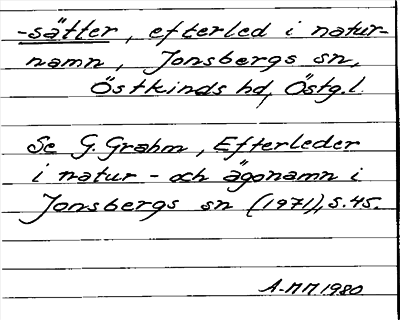 -sätter, efterled i natur-
namn, Jonsbergs sn,
Östkinds hd, Östg.l.
Se G. Grahm, Efterleder
i natur- och ägonamn i
Jonsbergs sn (1971), s. 45.
A-MM 1980